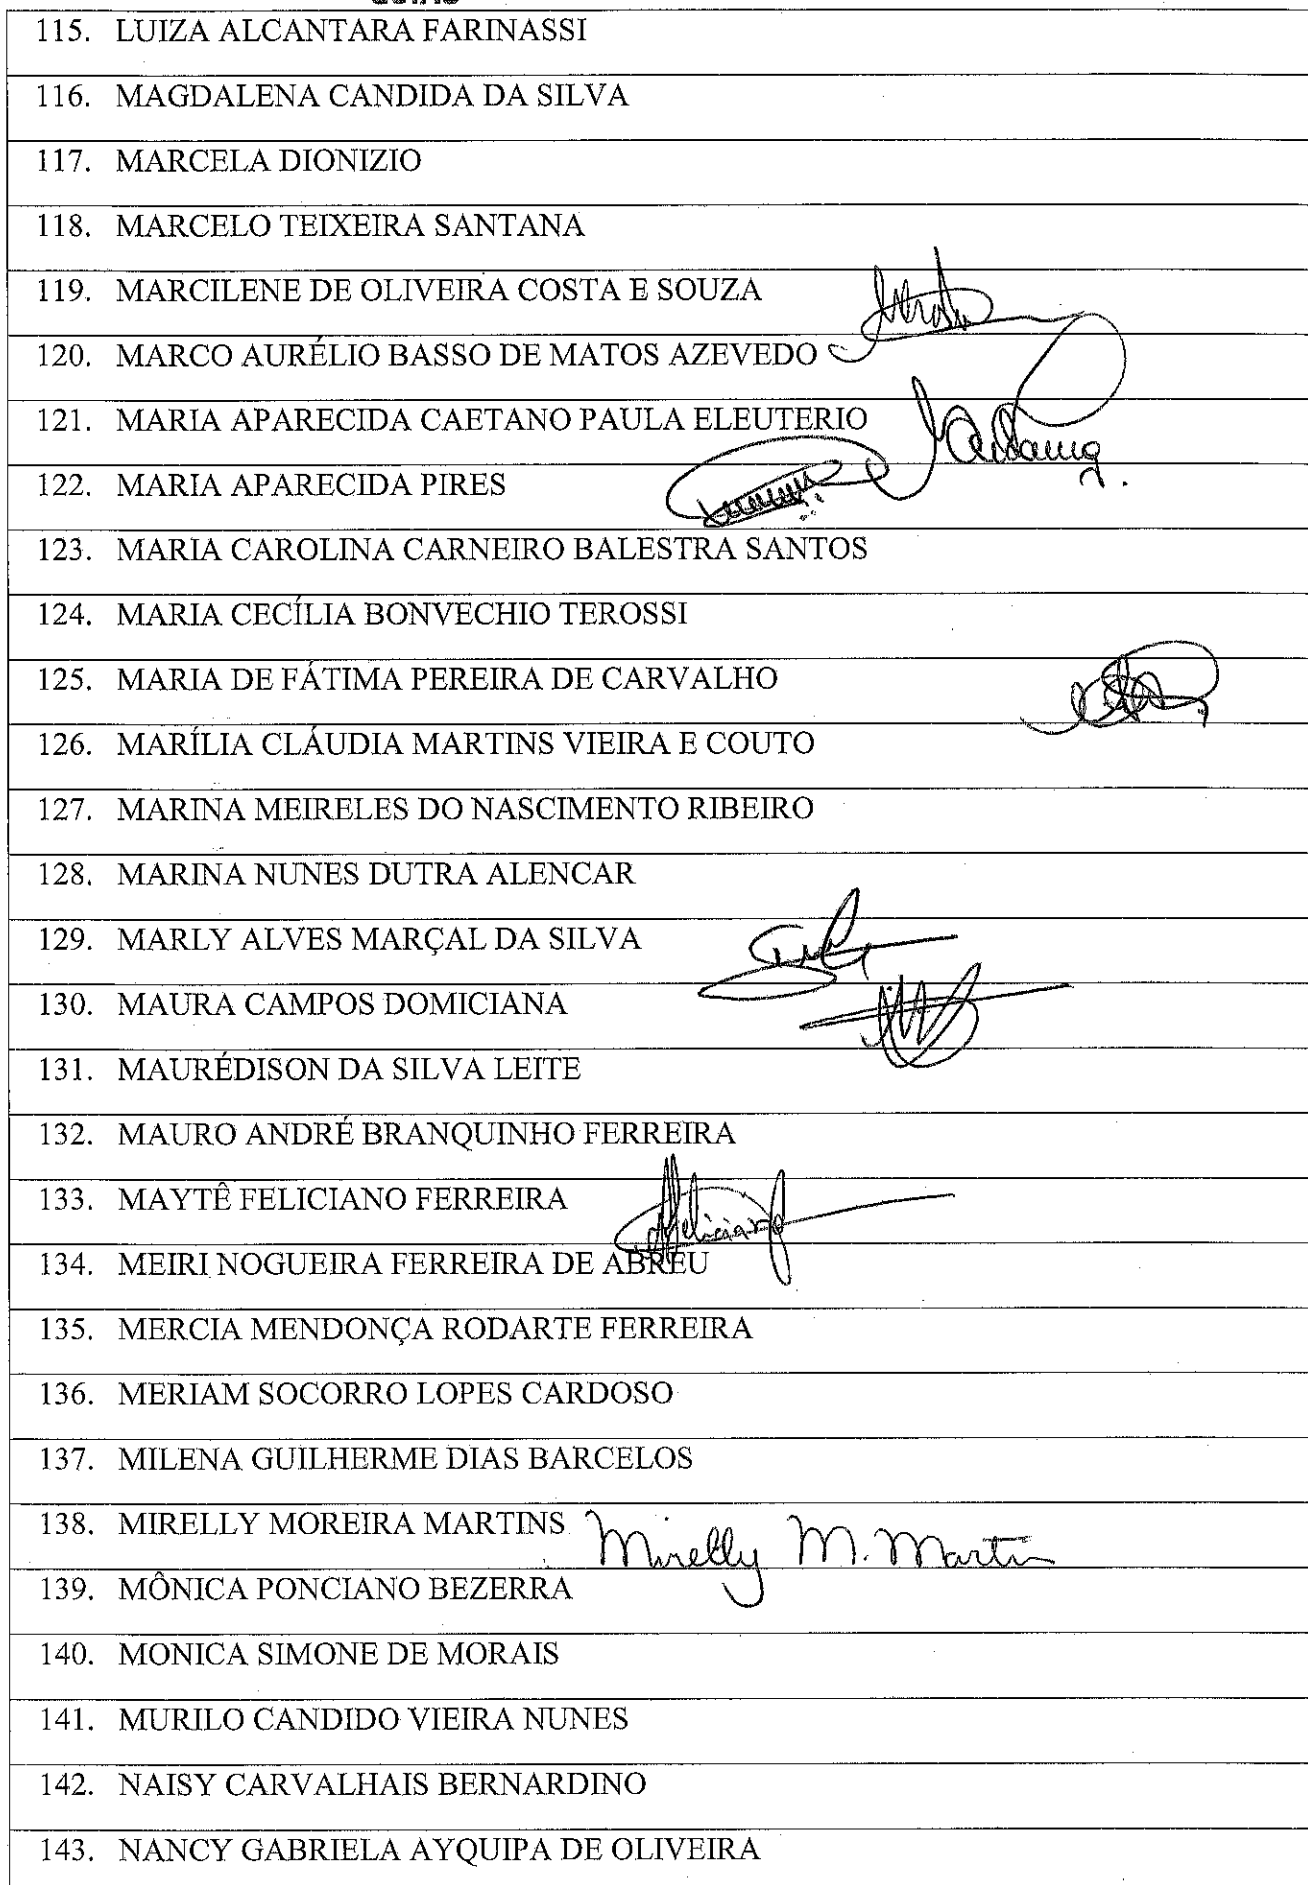 115. LUIZA ALCANTARA FARINASSI
116. MAGDALENA CANDIDA DA SILVA
117. MARCELA DIONIZIO
118. MARCELO TEIXEIRA SANTANA
119. MARCILENE DE OLIVEIRA COSTA E SOUZA
120. MARCO AURÉLIO BASSO DE MATOS AZEVEDO
121. MARIA APARECIDA CAETANO PAULA ELEUTERIO
122. MARIA APARECIDA PIRES
123. MARIA CAROLINA CARNEIRO BALESTRA SANTOS
124. MARIA CECÍLIA BONVECHIO TEROSSI
125. MARIA DE FÁTIMA PEREIRA DE CARVALHO
126. MARÍLIA CLÁUDIA MARTINS VIEIRA E COUTO
127. MARINA MEIRELES DO NASCIMENTO RIBEIRO
128. MARINA NUNES DUTRA ALENCAR
129. MARLY ALVES MARÇAL DA SILVA
130. MAURA CAMPOS DOMICIANA
131. MAURÉDISON DA SILVA LEITE
132. MAURO ANDRÉ BRANQUINHO FERREIRA
133. MAYTÊ FELICIANO FERREIRA
134. MEIRI NOGUEIRA FERREIRA DE ABREU
135. MERCIA MENDONÇA RODARTE FERREIRA
136. MERIAM SOCORRO LOPES CARDOSO
137. MILENA GUILHERME DIAS BARCELOS
138. MIRELLY MOREIRA MARTINS Mirelly M. Martin
139. MÔNICA PONCIANO BEZERRA
140. MONICA SIMONE DE MORAIS
141. MURILO CANDIDO VIEIRA NUNES
142. NAISY CARVALHAIS BERNARDINO
143. NANCY GABRIELA AYQUIPA DE OLIVEIRA